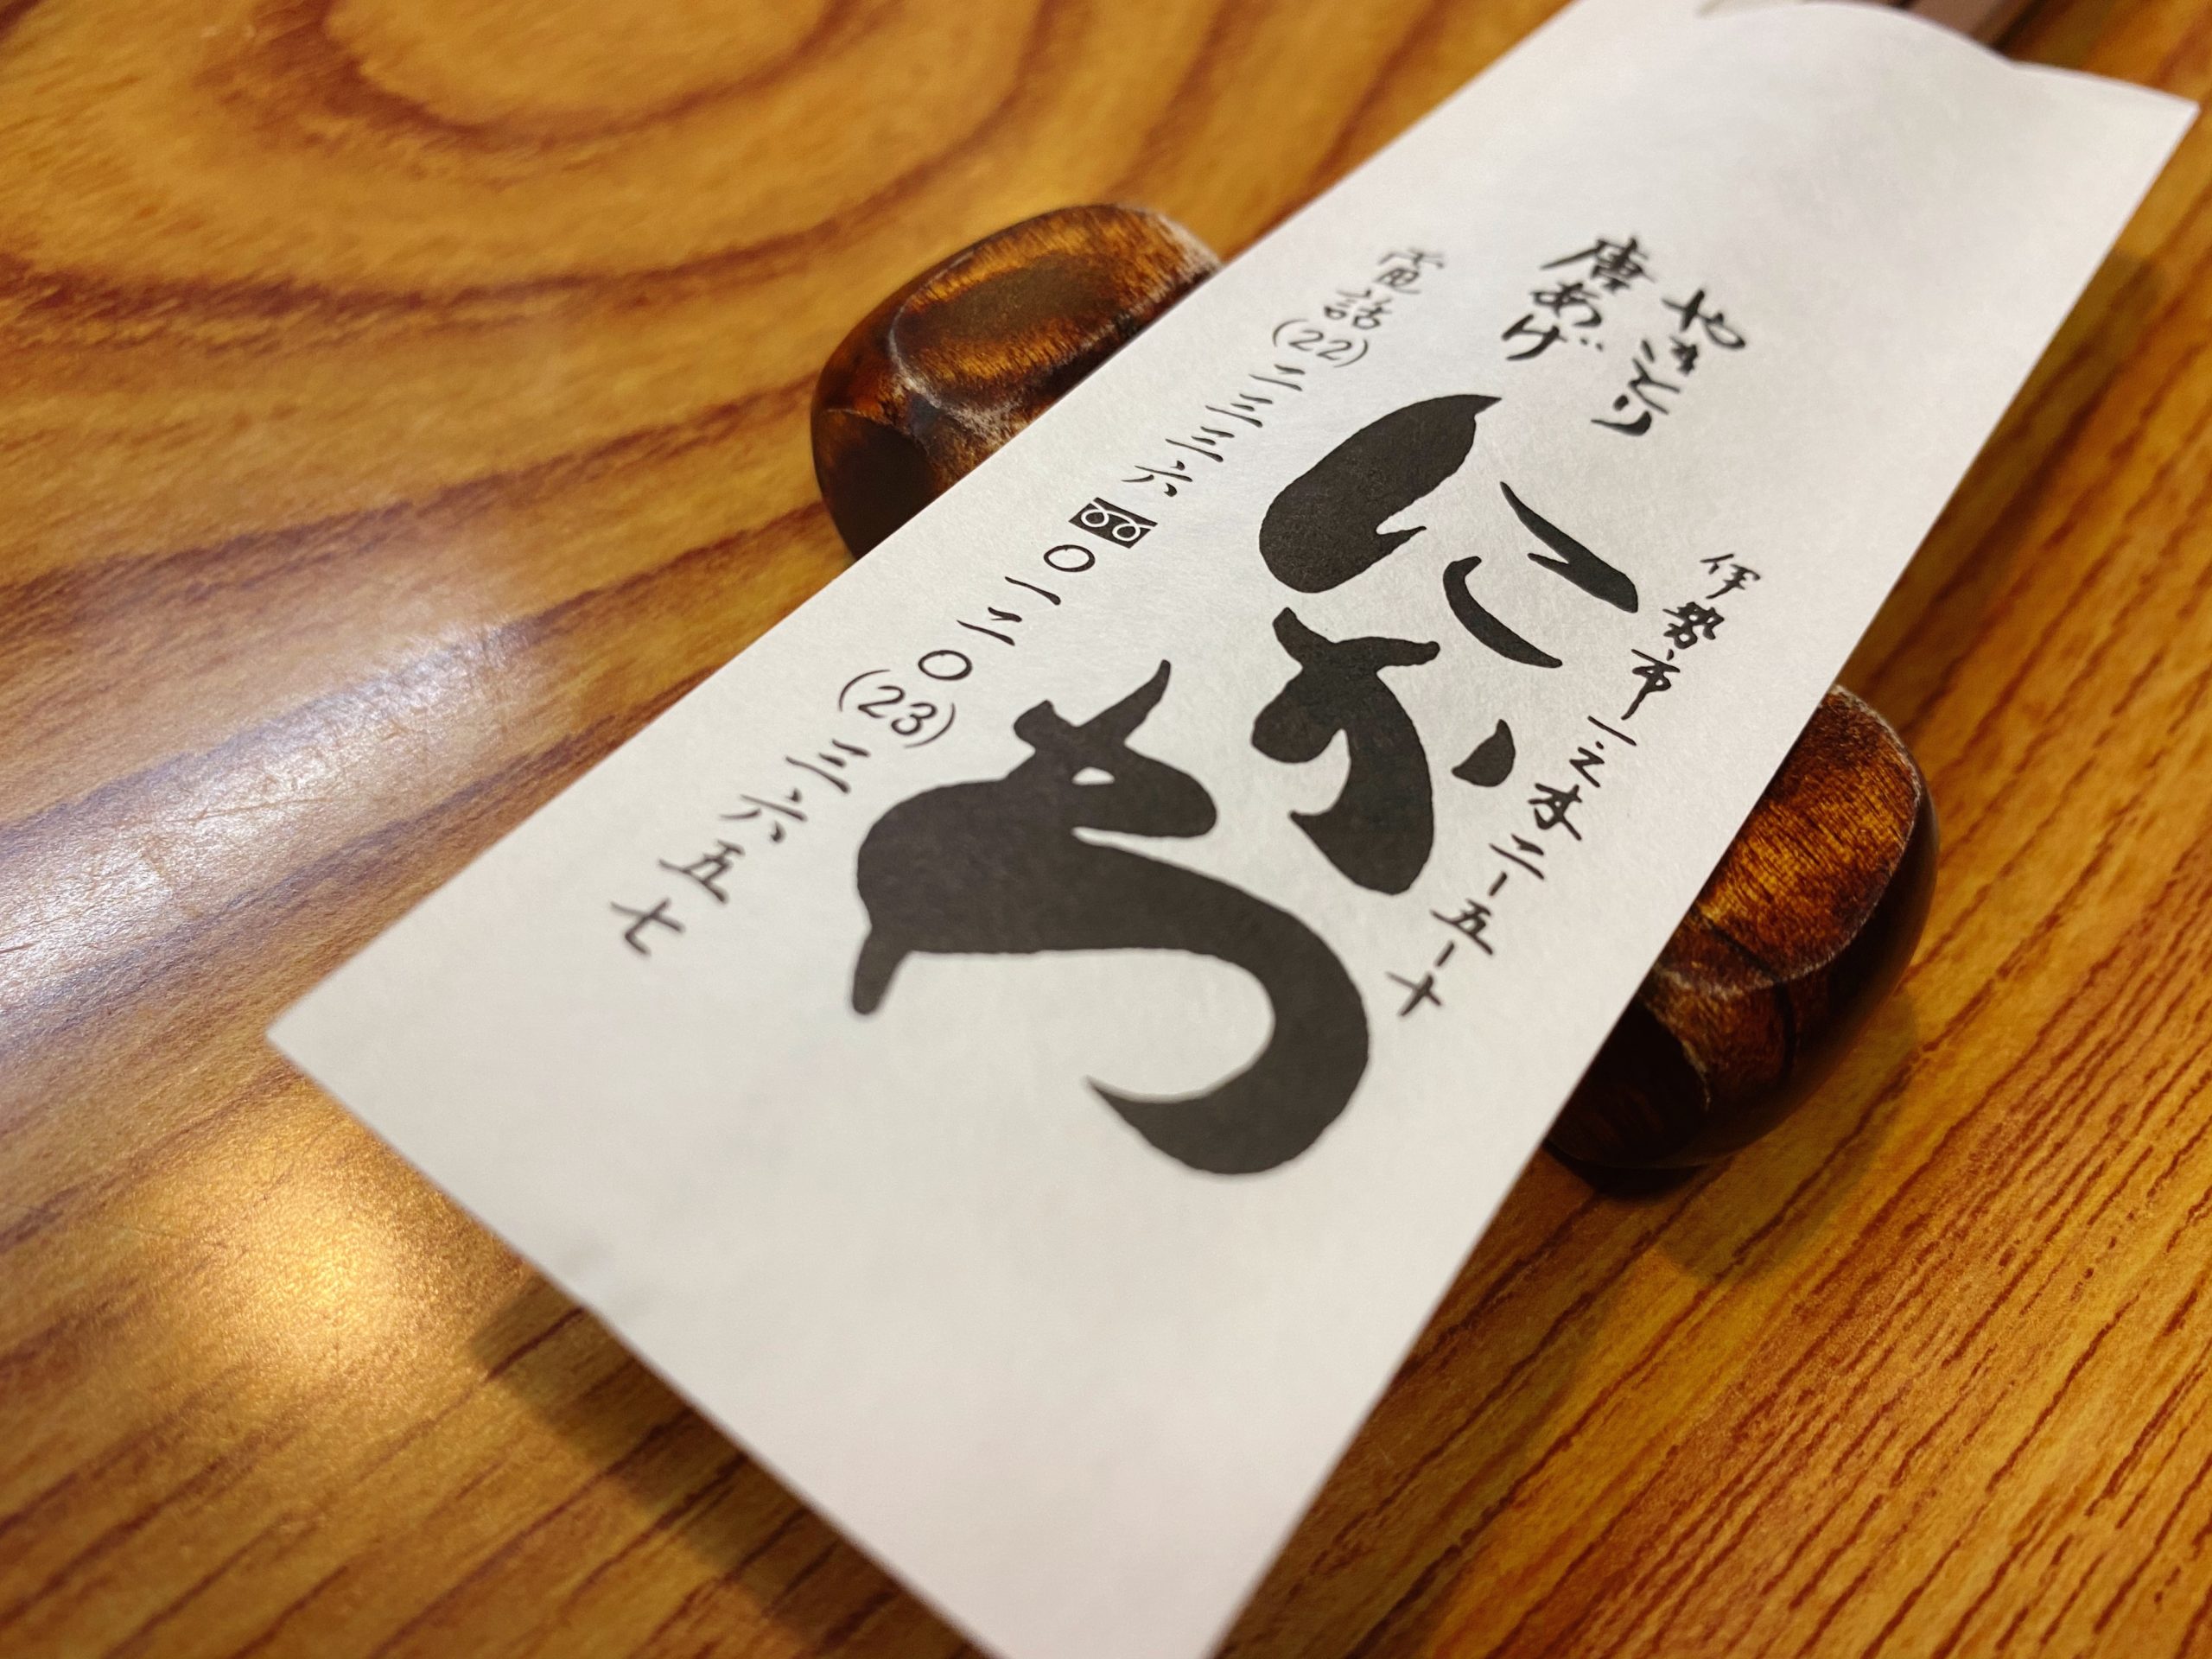 伊勢市一之木二-五-十
やきとり
唐あげ
にかわ
電話(22)二三三六 〇一二〇(23)三六五七